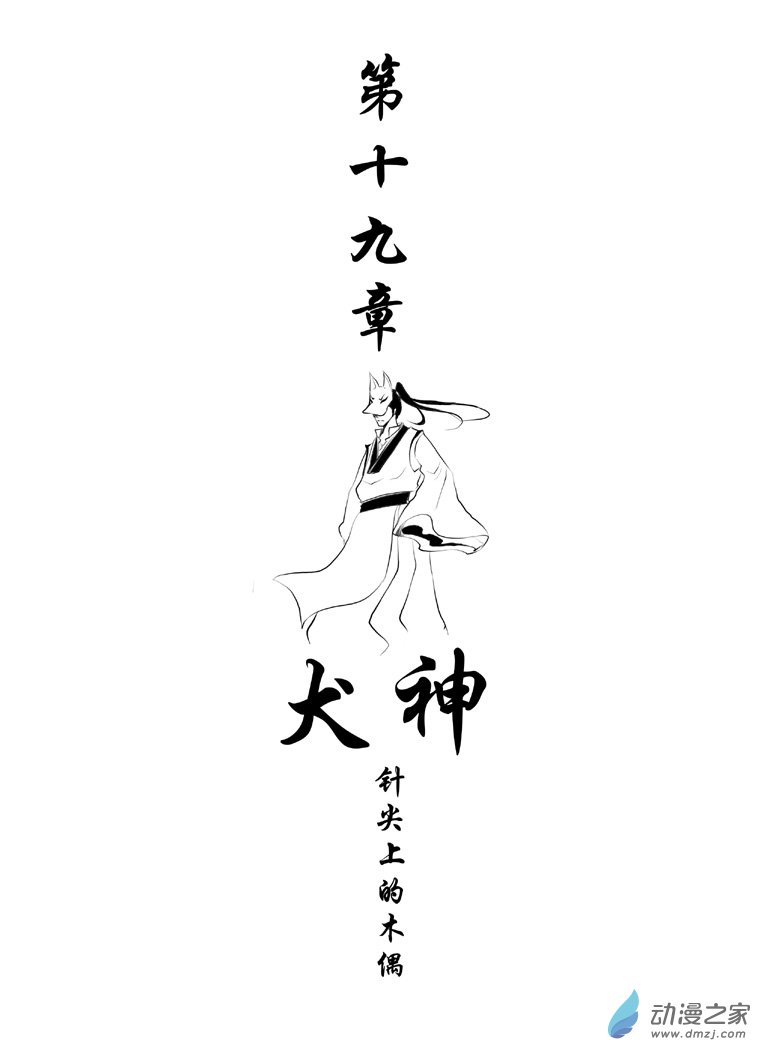 第十九章
犬神
针尖上的木偶
动漫之家
www.dmzj.com